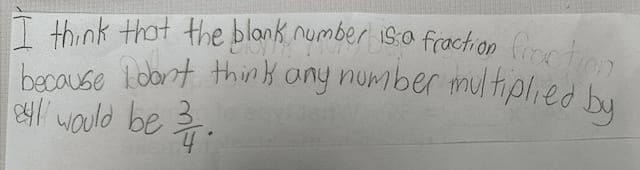 I think that the blank number is a fraction
because I dont think any number multiplied by
would be 3/4.